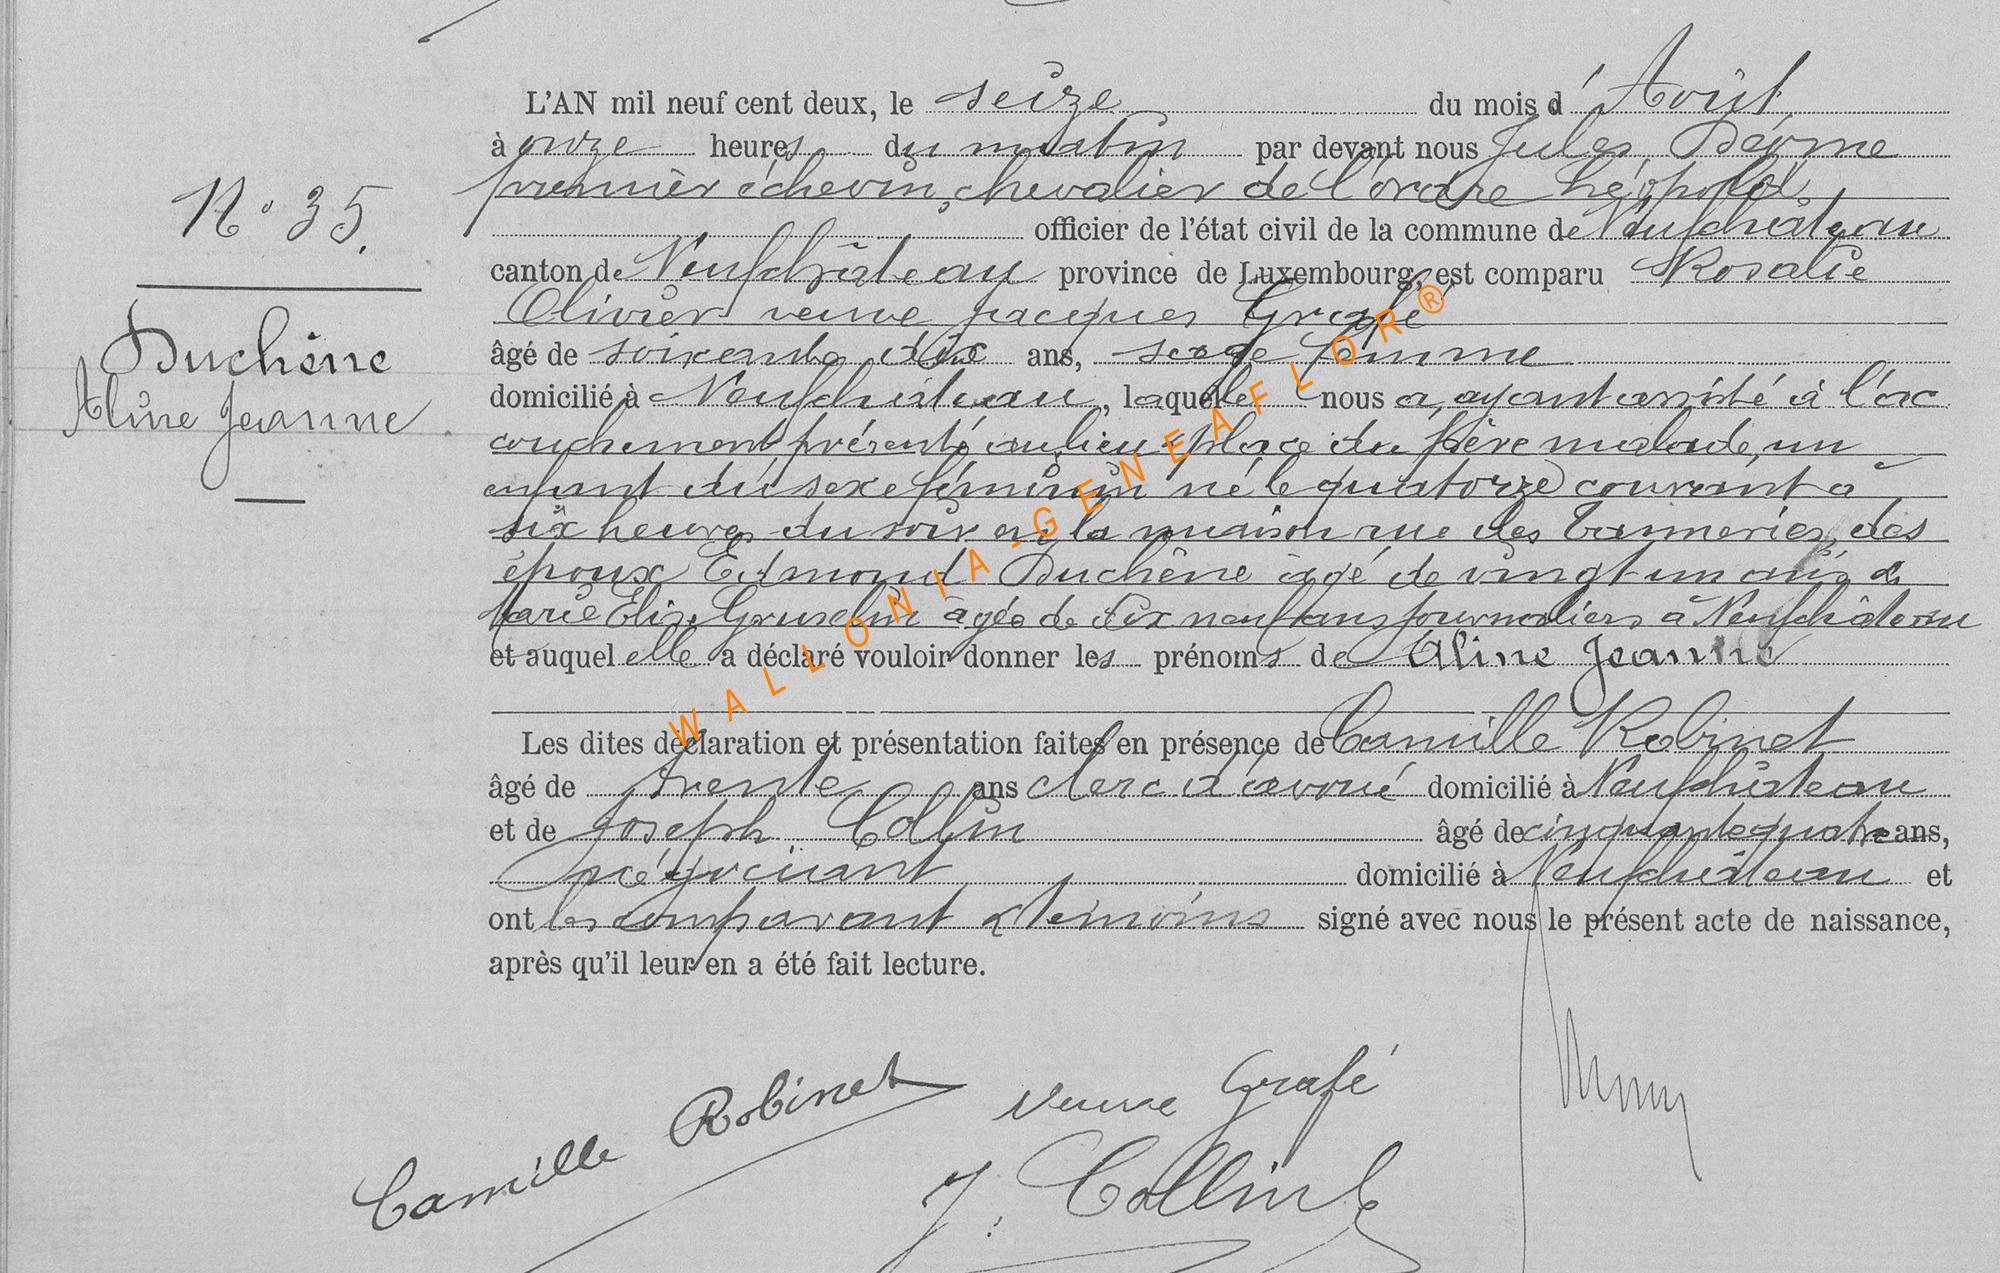 L'AN mil neuf cent deux, le seize du mois d'Août
à onze heures du matin par devant nous Jules Dérome
premier échevin, chevalier de l'ordre Léopold,
N° 35.
officier de l'état civil de la commune de Neufchâteau
canton de Neufchâteau province de Luxembourg, est comparu Rosalie
Olivier veuve Jacques Grafé
âgé de soixante dix ans, sage femme
Duchêne
Aline Jeanne
domicilié à Neufchâteau, laquelle nous a, ayant assisté à l'ac
couchement présenté au lieu & place du père malade, un
enfant du sexe féminin né le quatorze courant à
six heures du soir en la maison rue des Tanneries, des
époux Edmond Duchêne âgé de vingt-un ans &
Marie Elis. âgée de dix neuf ans journaliers à Neufchâteau
et auquel elle a déclaré vouloir donner les prénoms de Aline Jeanne
Les dites déclaration et présentation faites en présence de Camille Robinet
âgé de trente ans clerc d'avoué domicilié à Neufchâteau
et de Joseph Collin âgé de cinquante quatre ans,
négociant domicilié à Neufchâteau et
ont les comparant & témoins signé avec nous le présent acte de naissance,
après qu'il leur en a été fait lecture.
Camille Robinet
veuve Grafé
J. Collin
WALLONIA-GENEAFLOR®